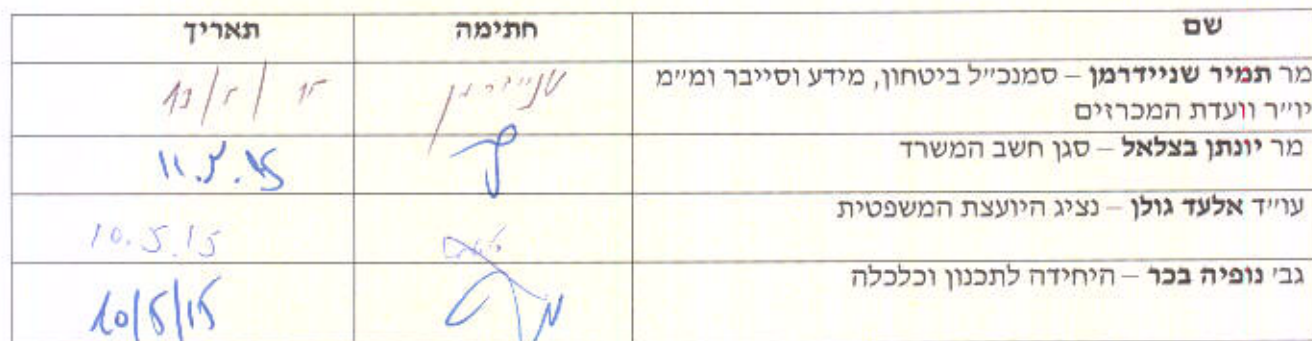 שם חתימה תאריך
מר תמיר שניידרמן – סמנכ״ל ביטחון, מידע וסייבר ומ״מ שניידרמן 13/5/15
יו״ר וועדת המכרזים
מר יונתן בצלאל – סגן חשב המשרד 11.5.15
עו״ד אלעד גולן – נציג היועצת המשפטית 10.5.15
גב׳ נופיה בכר – היחידה לתכנון וכלכלה 10/5/15